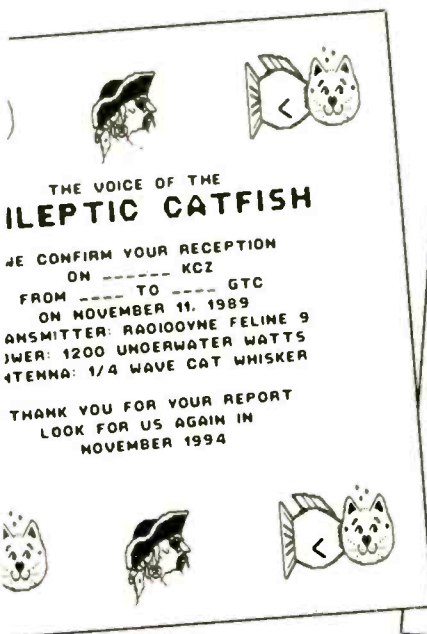 THE VOICE OF THE
ILEPTIC CATFISH
WE CONFIRM YOUR RECEPTION
ON ______ KCZ
FROM ____ TO ____ GTC
ON NOVEMBER 11, 1989
ANSMITTER: RADIODYNE FELINE 9
OWER: 1200 UNDERWATER WATTS
NTENNA: 1/4 WAVE CAT WHISKER
THANK YOU FOR YOUR REPORT
LOOK FOR US AGAIN IN
NOVEMBER 1994